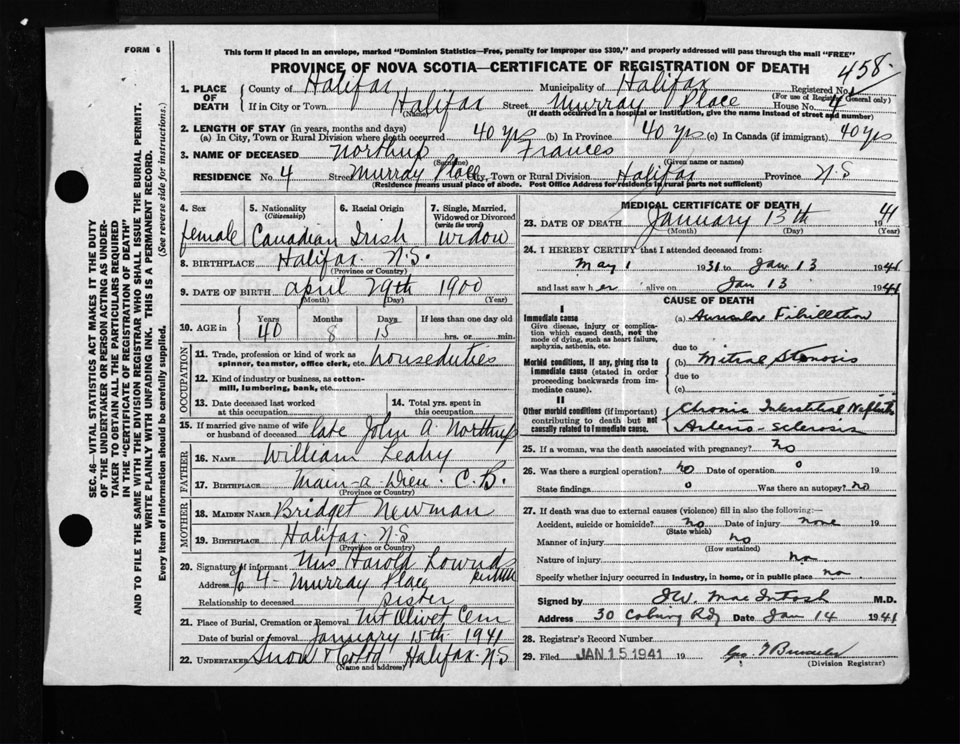 FORM 6
This form if placed in an envelope, marked "Dominion Statistics—Free, penalty for improper use $300," and properly addressed will pass through the mail "FREE"
PROVINCE OF NOVA SCOTIA—CERTIFICATE OF REGISTRATION OF DEATH
458
SEC. 46—VITAL STATISTICS ACT MAKES IT THE DUTY
OF THE UNDERTAKER OR PERSON ACTING AS UNDER-
TAKER TO OBTAIN ALL THE PARTICULARS REQUIRED
IN THE "CERTIFICATE OF REGISTRATION OF DEATH"
AND TO FILE THE SAME WITH THE DIVISION REGISTRAR WHO SHALL ISSUE THE BURIAL PERMIT.
WRITE PLAINLY WITH UNFADING INK. THIS IS A PERMANENT RECORD.
Every item of information should be carefully supplied. (See reverse side for instructions.)
1. PLACE OF DEATH County of Halifax Municipality of Halifax Registered No.
(For use of Registrar General only)
If in City or Town Halifax Street Murray Place House No. 4
(Name) (If death occurred in a hospital or institution, give the name instead of street and number)
2. LENGTH OF STAY (in years, months and days)
(a) In City, Town or Rural Division where death occurred 40 yrs (b) In Province 40 yrs (c) In Canada (if immigrant) 40 yrs
3. NAME OF DECEASED Northup Frances
(Surname) (Given name or names)
RESIDENCE No. 4 Street Murray Place City, Town or Rural Division Halifax Province N.S
(Residence means usual place of abode. Post Office Address for residents in rural parts not sufficient)
4. Sex female
5. Nationality (Citizenship) Canadian
6. Racial Origin Irish
7. Single, Married, Widowed or Divorced (write the word) Widow
8. BIRTHPLACE Halifax N.S.
(Province or Country)
9. DATE OF BIRTH April 29th 1900
(Month) (Day) (Year)
10. AGE in Years 40 Months 8 Days 15 If less than one day old hrs. or min.
OCCUPATION
11. Trade, profession or kind of work as spinner, teamster, office clerk, etc. houseduties
12. Kind of industry or business, as cotton-mill, lumbering, bank, etc.
13. Date deceased last worked at this occupation
14. Total yrs. spent in this occupation
15. If married give name of wife or husband of deceased late John A. Northup
FATHER
16. NAME William Leahy
17. BIRTHPLACE Main-a-Dieu C.B.
(Province or Country)
MOTHER
18. MAIDEN NAME Bridget Newman
19. BIRTHPLACE Halifax N.S
(Province or Country)
20. Signature of informant Mrs Harold Lownds
Address % 4 Murray Place
Relationship to deceased sister
21. Place of Burial, Cremation or Removal Mt Olivet Cem
Date of burial or removal January 15th 1941
22. UNDERTAKER Snow & Co Ltd Halifax N.S
(Name and address)
MEDICAL CERTIFICATE OF DEATH
23. DATE OF DEATH January 13th 1941
(Month) (Day) (Year)
24. I HEREBY CERTIFY that I attended deceased from:
May 1 1931 to Jan 13 1941
and last saw her alive on Jan 13 1941
CAUSE OF DEATH
I
Immediate cause
Give disease, injury or complication which caused death, not the mode of dying, such as heart failure, asphyxia, asthenia, etc.
(a) Auricular Fibrillation
due to
Morbid conditions, if any, giving rise to immediate cause (stated in order proceeding backwards from immediate cause).
(b) Mitral Stenosis
due to
(c)
II
Other morbid conditions (if important) contributing to death but not causally related to immediate cause.
Chronic Interstitial Nephritis
Arterio-Sclerosis
25. If a woman, was the death associated with pregnancy? No
26. Was there a surgical operation? no Date of operation 0 19
State findings 0 Was there an autopsy? no
27. If death was due to external causes (violence) fill in also the following:—
Accident, suicide or homicide? no Date of injury none 19
(State which)
Manner of injury no
(How sustained)
Nature of injury no
Specify whether injury occurred in industry, in home, or in public place no
Signed by J.W. MacIntosh M.D.
Address 30 Coburg Rd Date Jan 14 1941
28. Registrar's Record Number
29. Filed JAN 15 1941 19
(Division Registrar)